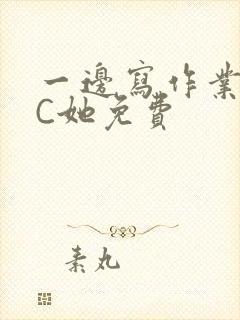 一邊寫作業
C她免費
素丸